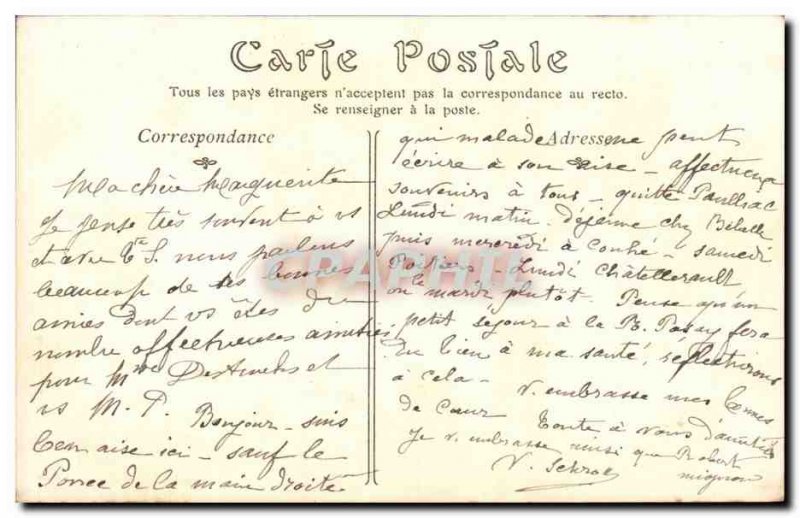 Carte Postale
Tous les pays étrangers n'acceptent pas la correspondance au recto.
Se renseigner à la poste.
Correspondance
Ma chère Marguerite
Je pense très souvent à vs
et avec nous parlons
beaucoup de ses bonnes
amies dont vs êtes du
nombre affectueuses amitiés
pour Mme et
vs M. P. Bonjour - suis
bien aise ici - sauf le
Pouce de la main droite
Adresse
qui malade ne peut
écrire à son aise - affectueux
souvenirs à tous - quitte Pauillac
Lundi matin. Déjeune chez
puis mercredi à Couhé - samedi
Poitiers - Lundi Châtellerault
ou mardi plutôt. Pense qu'un
petit séjour à la R. Posay fera
du bien à ma santé, réflections
à cela - V. embrasse mes
de cœur Toute à vous d'amitiés
Je v. embrasse ainsi que Robert
mignon
V.
CPAPHIL